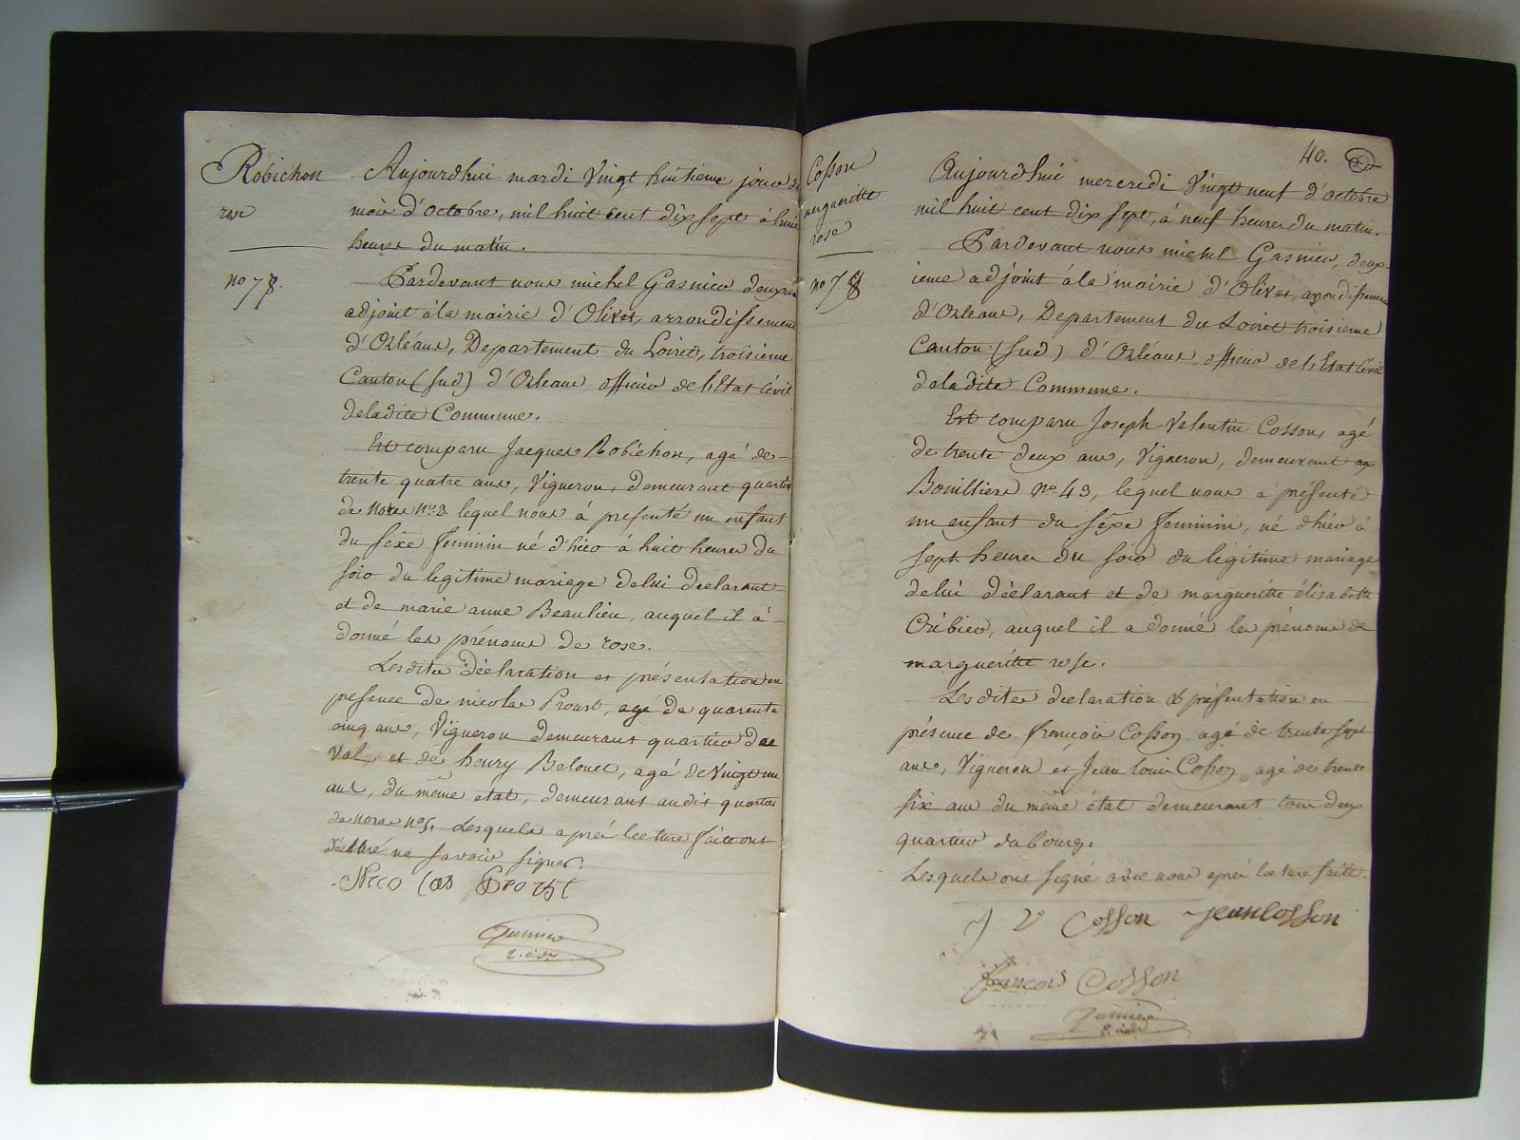 Robichon
rose
no 78.
Aujourdhui mardi Vingt huitieme jour du
mois d'octobre, mil huit cent dix sept à huit
heures du matin.
Pardevant nous michel Gasnier deuxieme
adjoint à la mairie d'Olivet, arrondissement
d'Orléans, Departement du Loiret, troisieme
Canton (sud) d'Orleans officier de l'Etat Civil
de la dite Commune.
Est comparu Jacques Robichon, agé de
trente quatre ans, Vigneron, demeurant quartier
de lequel nous à presenté un enfant
du sexe feminin né d'hier à huit heures du
soir du legitime mariage de lui declarant
et de marie anne Beaulieu, auquel il à
donné les prénoms de rose.
Les dites déclaration et présentation en
presence de nicolas Proust, agé de quarente
cinq ans, Vigneron demeurant quartier du
Val, et de henry Belouet, agé de Vingt un
ans, du même etat, demeurant audit quartier
Lesquels après lecture faite ont
déclaré ne savoir signer.
Nico las Proust
Gasnier
2. adj
40.
Cosson
marguerite
rose
no 78
Aujourdhui mercredi Vingt neuf d'octobre
mil huit cent dix sept, à neuf heures du matin.
Pardevant nous michel Gasnier, deux-
ieme adjoint à la mairie d'Olivet, arrondissement
d'Orléans, Departement du Loiret troisieme
Canton (sud) d'Orléans officier de l'Etat Civil
de la dite Commune.
Est comparu Joseph Valentin Cosson, agé
de trente deux ans, Vigneron, demeurant au
Bouilliers no 43, lequel nous à présenté
un enfant du sexe feminin, né d'hier à
sept heures du soir du légitime mariage
de lui déclarant et de margueritte élisabeth
Cribier, auquel il a donné les prénoms de
margueritte rose.
Les dites declaration & présentation en
présence de françois Cosson agé de trente sept
ans, Vigneron et Jean louis Cosson, agé de trente
six ans du même état demeurant tous deux
quartier du bourg.
Lesquels ont signé avec nous après lecture faitte.
J V Cosson jean Cosson
francois Cosson
Gasnier
2. adj